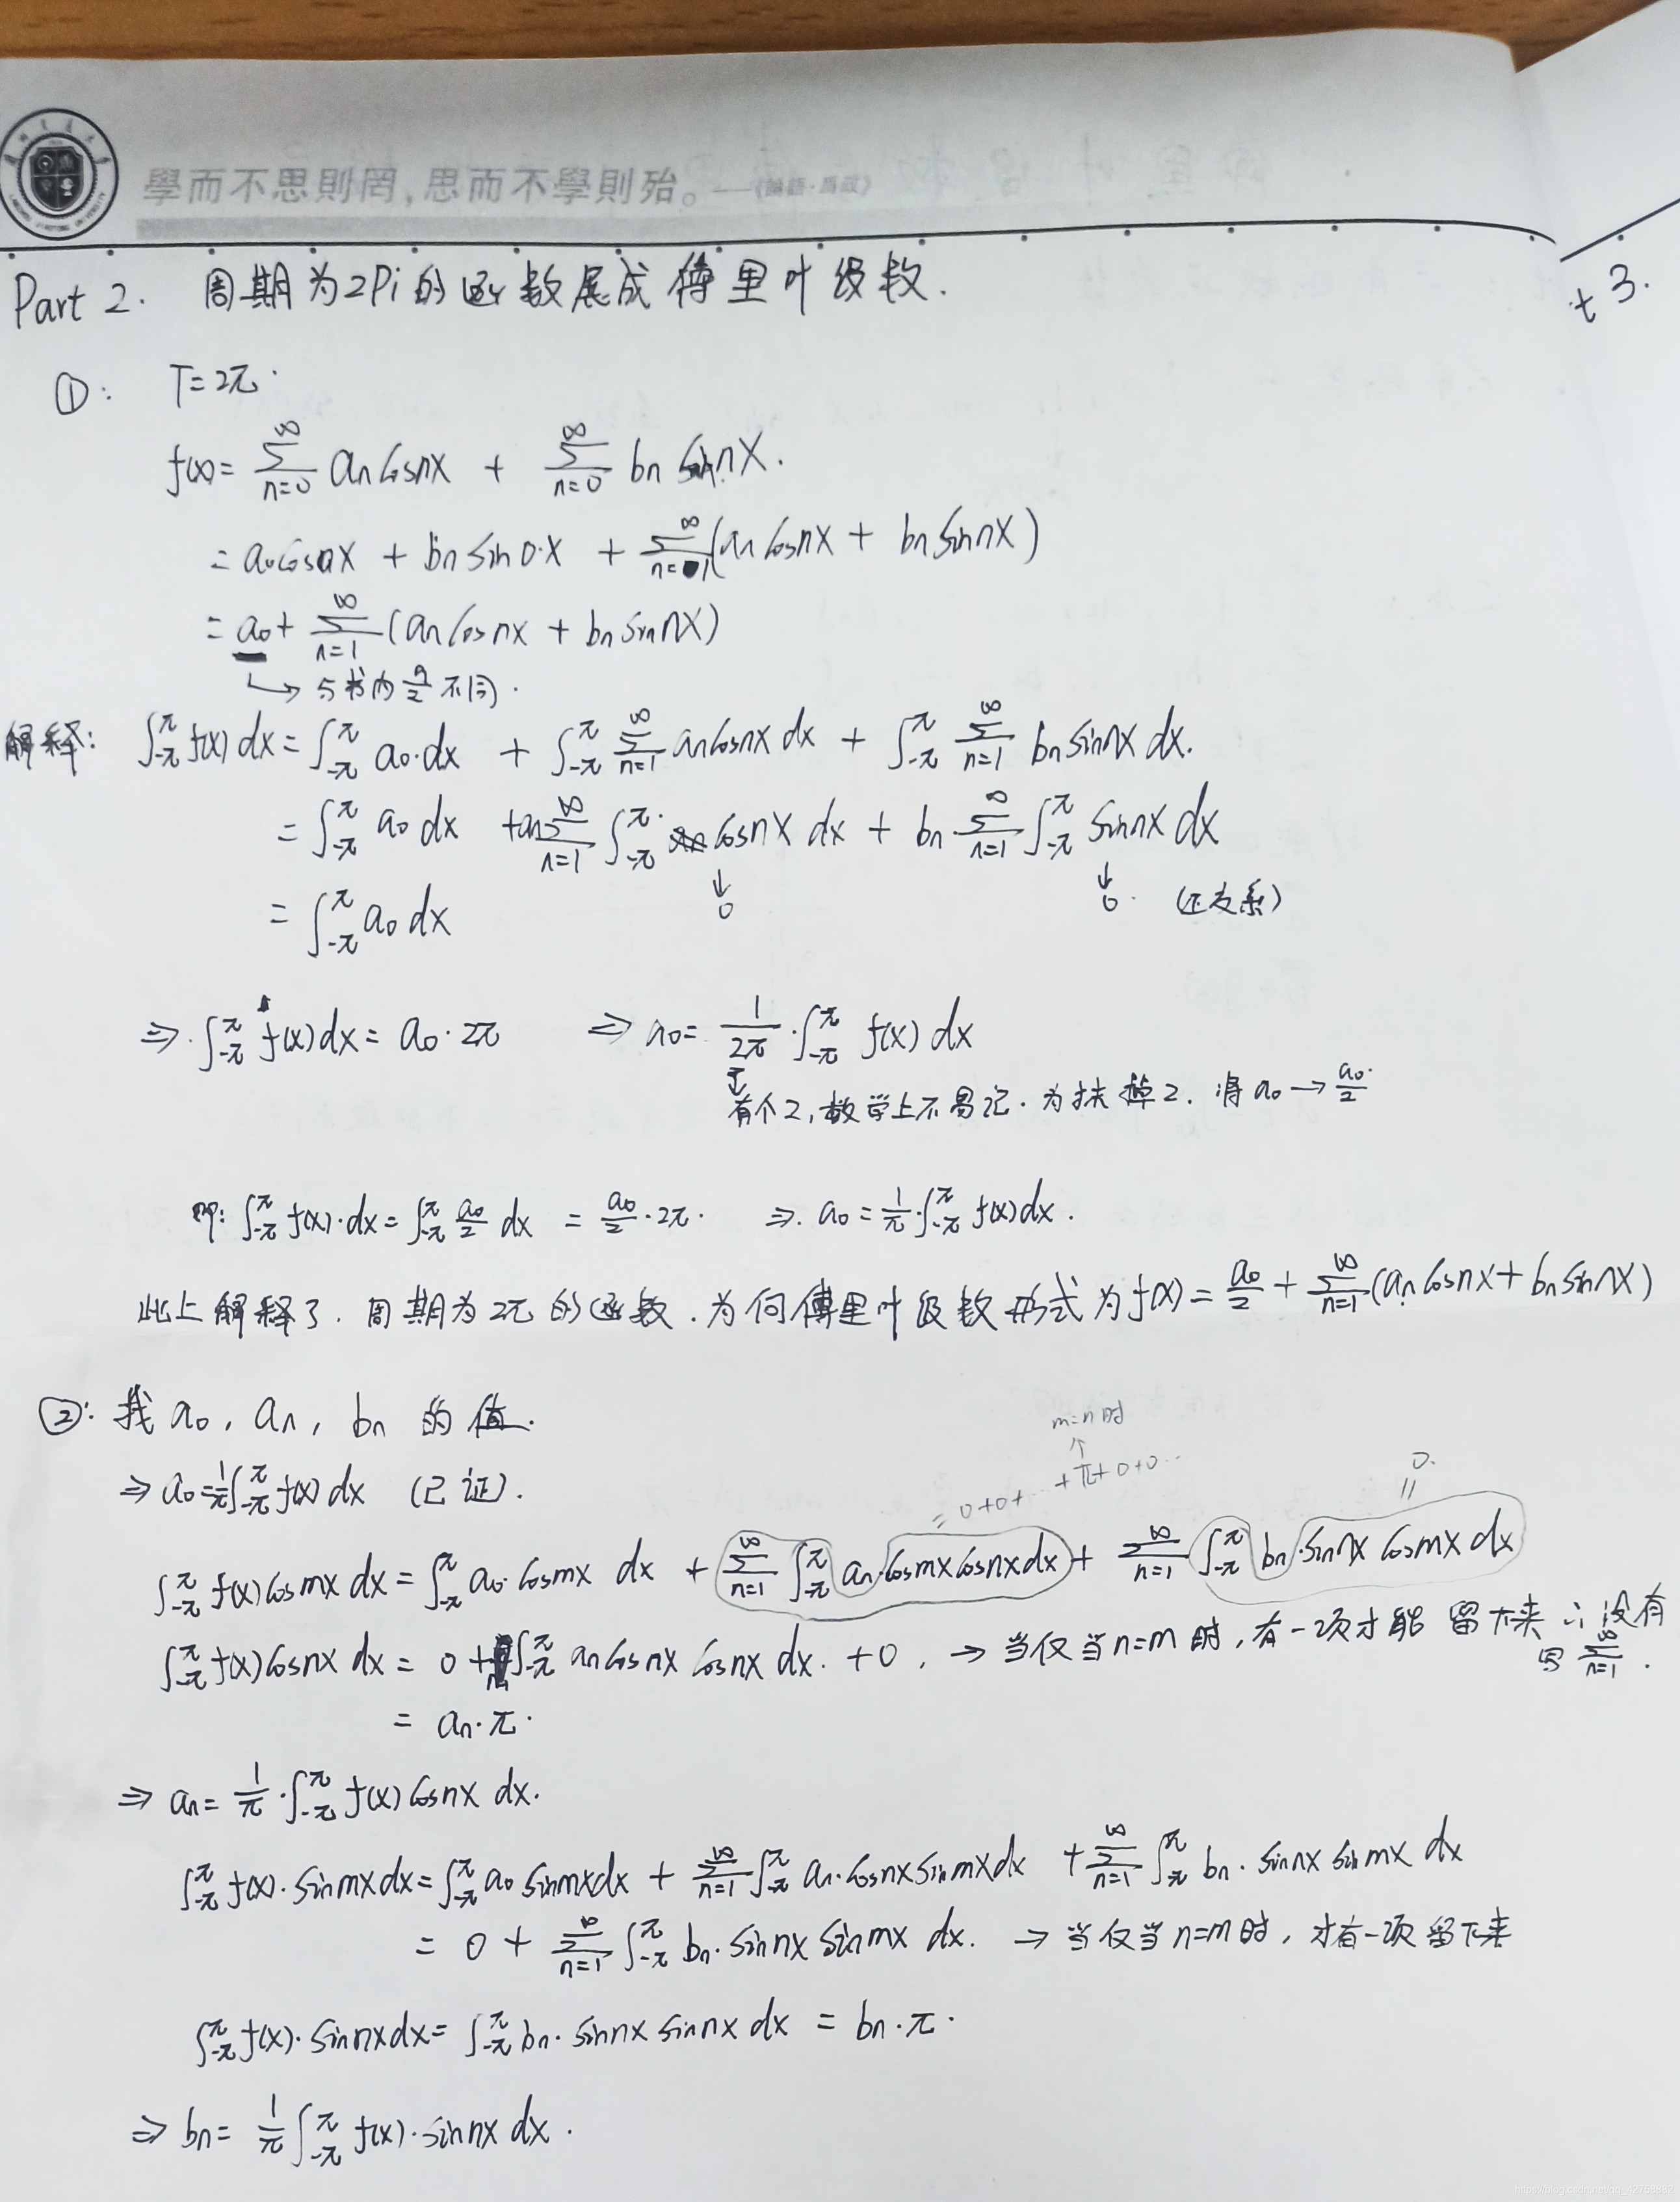 學而不思則罔,思而不學則殆。——《論語·爲政》
Part 2. 周期为2Pi的函数展成傅里叶级数.
t 3.
①: T=2π.
f(x)= ∑_{n=0}^{∞} an cosnx + ∑_{n=0}^{∞} bn sinnx.
= a0cos0x + bn sin0·x + ∑_{n=1}^{∞}(an cosnx + bn sinnx)
= a0 + ∑_{n=1}^{∞}(an cosnx + bn sinnx)
↳ 与书内 a/2 不同.
解释: ∫_{-π}^{π} f(x) dx = ∫_{-π}^{π} a0·dx + ∫_{-π}^{π} ∑_{n=1}^{∞} an cosnx dx + ∫_{-π}^{π} ∑_{n=1}^{∞} bn sinnx dx.
= ∫_{-π}^{π} a0 dx + an ∑_{n=1}^{∞} ∫_{-π}^{π} cosnx dx + bn·∑_{n=1}^{∞} ∫_{-π}^{π} sinnx dx
↓ ↓
0 0. (正交系)
= ∫_{-π}^{π} a0 dx
⇒ ∫_{-π}^{π} f(x)dx = a0·2π ⇒ a0 = 1/2π · ∫_{-π}^{π} f(x) dx
↓
有个2,数学上不易记.为抹掉2.将a0→a0/2
即: ∫_{-π}^{π} f(x)·dx = ∫_{-π}^{π} a0/2 dx = a0/2·2π. ⇒ a0 = 1/π·∫_{-π}^{π} f(x)dx.
此上解释了.周期为2π的函数.为何傅里叶级数形式为f(x)= a0/2 + ∑_{n=1}^{∞}(an cosnx + bn sinnx)
②: 找 a0, an, bn 的值.
m=n时
↑
= 0+0+…+π+0+0… 0.
⇒ a0 = 1/π ∫_{-π}^{π} f(x) dx (已证).
∫_{-π}^{π} f(x)cosmx dx = ∫_{-π}^{π} a0·cosmx dx + ∑_{n=1}^{∞} ∫_{-π}^{π} an·cosmxcosnxdx + ∑_{n=1}^{∞} ∫_{-π}^{π} bn·sinnx cosmx dx
∫_{-π}^{π} f(x)cosnx dx = 0 + ∫_{-π}^{π} an cosnx cosnx dx. + 0, → 当仅当n=m时,有一项才能留下来∴没有
写 ∑_{n=1}^{∞}.
= an·π.
⇒ an = 1/π·∫_{-π}^{π} f(x) cosnx dx.
∫_{-π}^{π} f(x)·sinmxdx = ∫_{-π}^{π} a0 sinmxdx + ∑_{n=1}^{∞} ∫_{-π}^{π} an·cosnxsinmxdx + ∑_{n=1}^{∞} ∫_{-π}^{π} bn·sinnx sinmx dx
= 0 + ∑_{n=1}^{∞} ∫_{-π}^{π} bn·sinnx sinmx dx. → 当仅当n=m时,才有一项留下来
∫_{-π}^{π} f(x)·sinnxdx = ∫_{-π}^{π} bn·sinnx sinnx dx = bn·π.
⇒ bn = 1/π ∫_{-π}^{π} f(x)·sinnx dx.